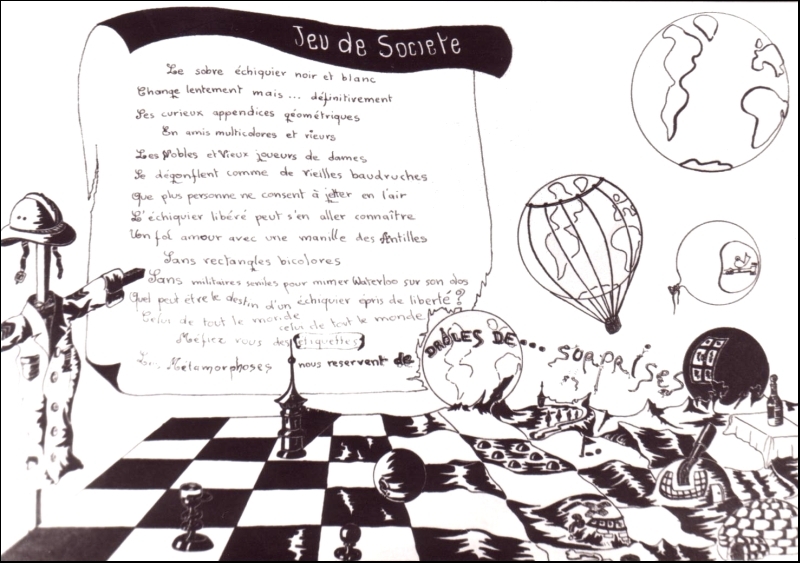 Jeu de Societe
Le sobre échiquier noir et blanc
Change lentement mais... définitivement
Ses curieux appendices géométriques
En amis multicolores et rieurs
Les Nobles et Vieux joueurs de dames
Se dégonflent comme de vieilles baudruches
Que plus personne ne consent à jetter en l'air
L'échiquier libéré peut s'en aller connaître
Un fol amour avec une manille des Antilles
Sans rectangles bicolores
Sans militaires seniles pour mimer Waterloo sur son dos
Quel peut être le destin d'un échiquier épris de liberté ?
Celui de tout le monde
celui de tout le monde
Méfiez vous des (étiquettes)
Les Métamorphoses nous reservent de DRÔLES DE... SORPRISES